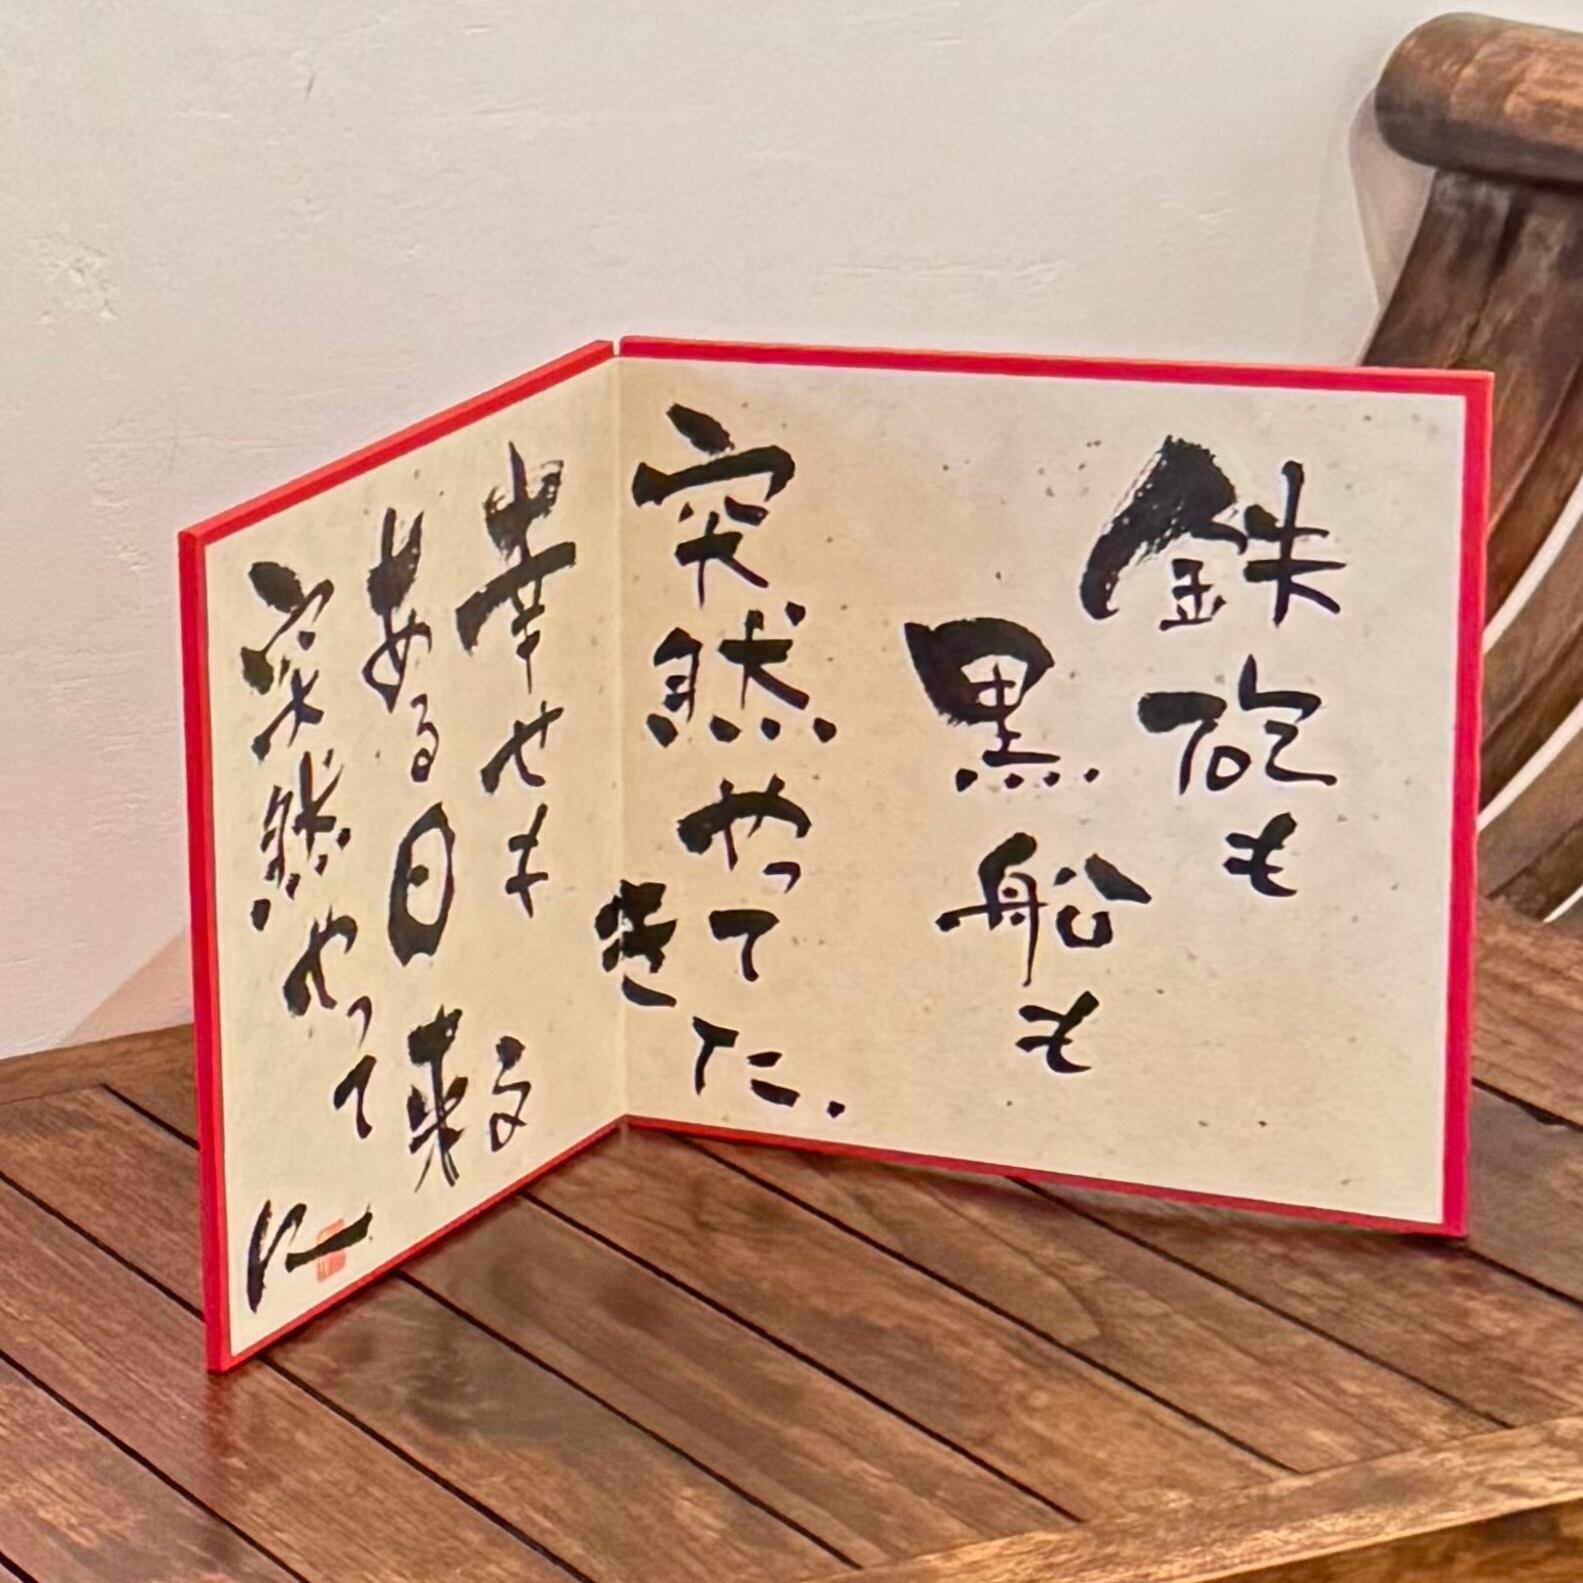 鉄砲も
黒船も
突然やってきた.
幸せも
ある日
突然やって
来る